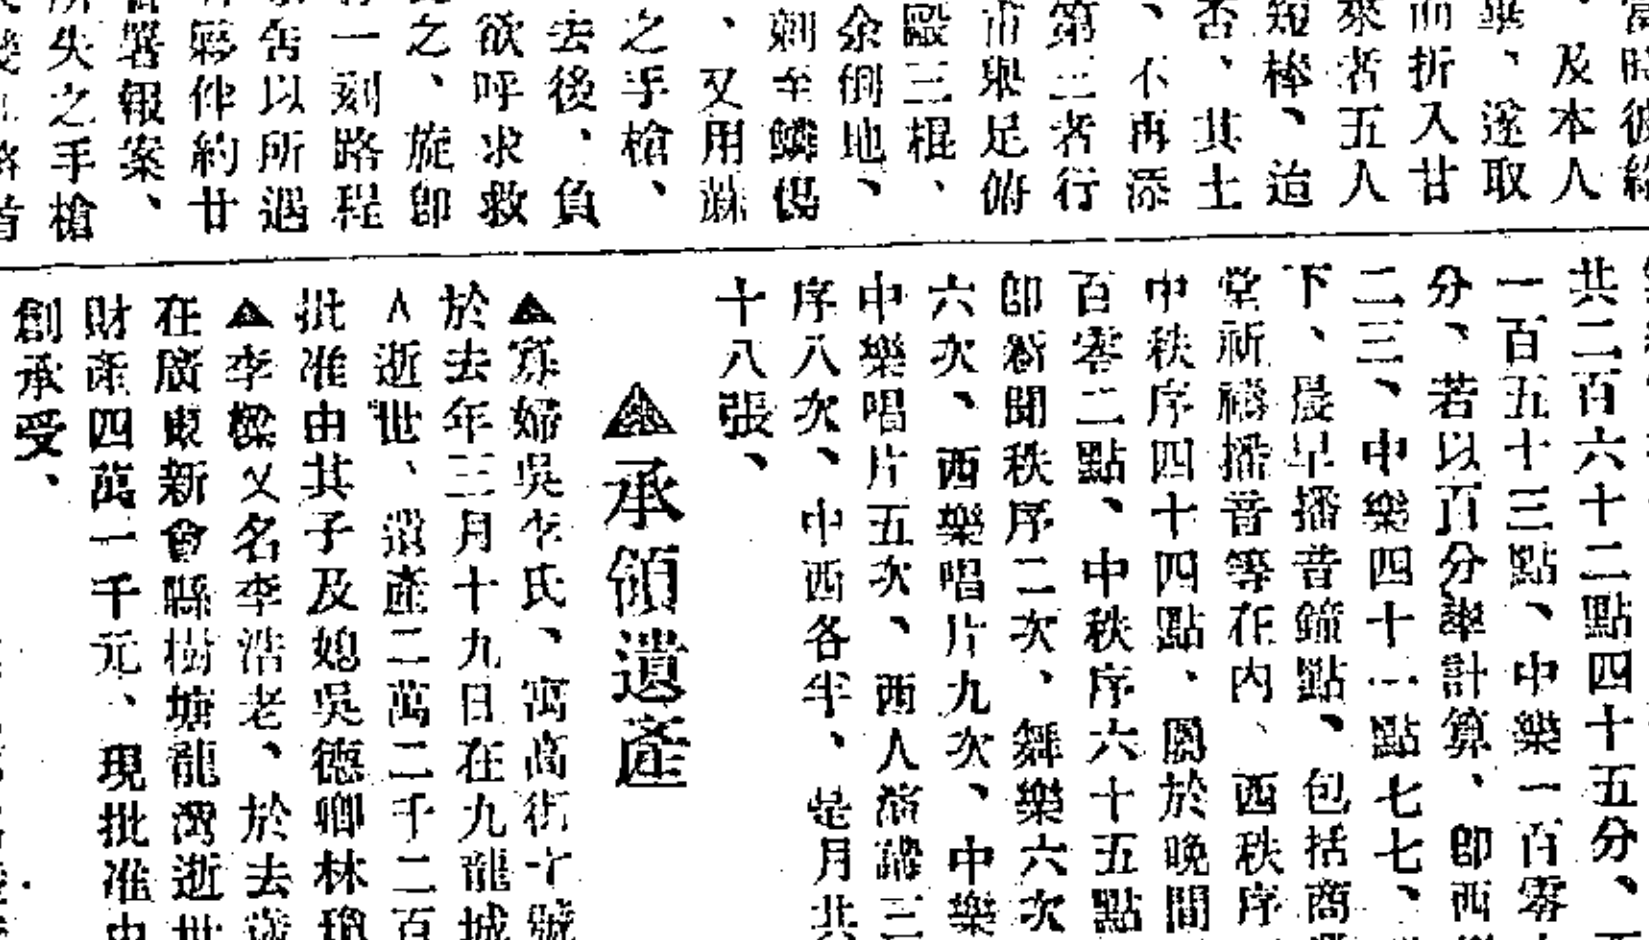 當時彼
、及本人
畢、遂取
而折入甘
來者五人
短棒、迨
否、其士
、不再添
第三者行
市舉足俯
毆三棍、
余倒地、
刺至鱗傷
、又用蔴
之手槍、
去後、負
欲呼求救
之、旋卽
一刻路程
告以所遇
夥伴約廿
署報案、
所失之手槍
共二百六十二點四十五分、
一百五十三點、中樂一百零
分、若以百分率計算、卽西
二三、中樂四十一點七七、
下、晨早播音鐘點、包括商
堂祈禱播音等在内、西秩序
中秩序四十四點、關於晚間
百零二點、中秩序六十五點
卽新聞秩序二次、舞樂六次
六次、西樂唱片九次、中樂
中樂唱片五次、西人演講三
序八次、中西各半、是月共
十八張、
▲承領遺產
▲寡婦吳李氏、寓高街十號
於去年三月十九日在九龍城
人逝世、遺產二萬二千二百
批准由其子及媳吳德卿林瓊
▲李樑又名李浩老、於去歲
在廣東新會縣樹塘龍灣逝世
財產四萬一千元、現批准由
創承受、